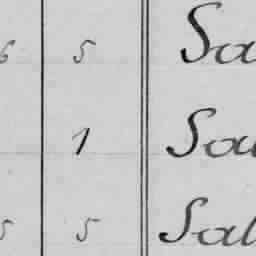 6 5 Sa
1 Sa
5 5 Sal